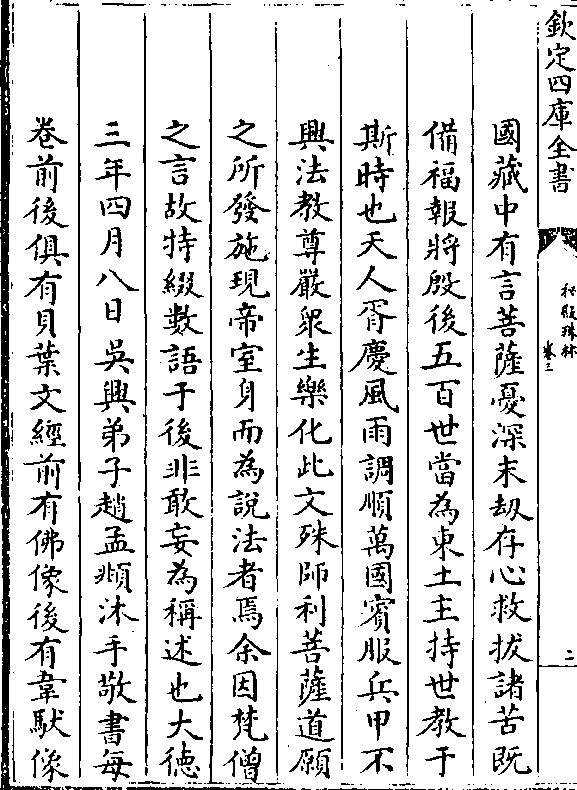 欽定四庫全書
秘殿珠林
卷三
二
國藏中有言菩薩憂深末劫存心救拔諸苦既
備福報將殷後五百世當為東土主持世教于
斯時也天人胥慶風雨調順萬國賓服兵甲不
興法教尊嚴衆生樂化此文殊師利菩薩道願
之所發施現帝室身而為說法者焉余因梵僧
之言故特綴數語于後非敢妄為稱述也大德
三年四月八日吳興弟子趙孟頫沐手敬書每
卷前後俱有貝葉文經前有佛像後有韋馱像